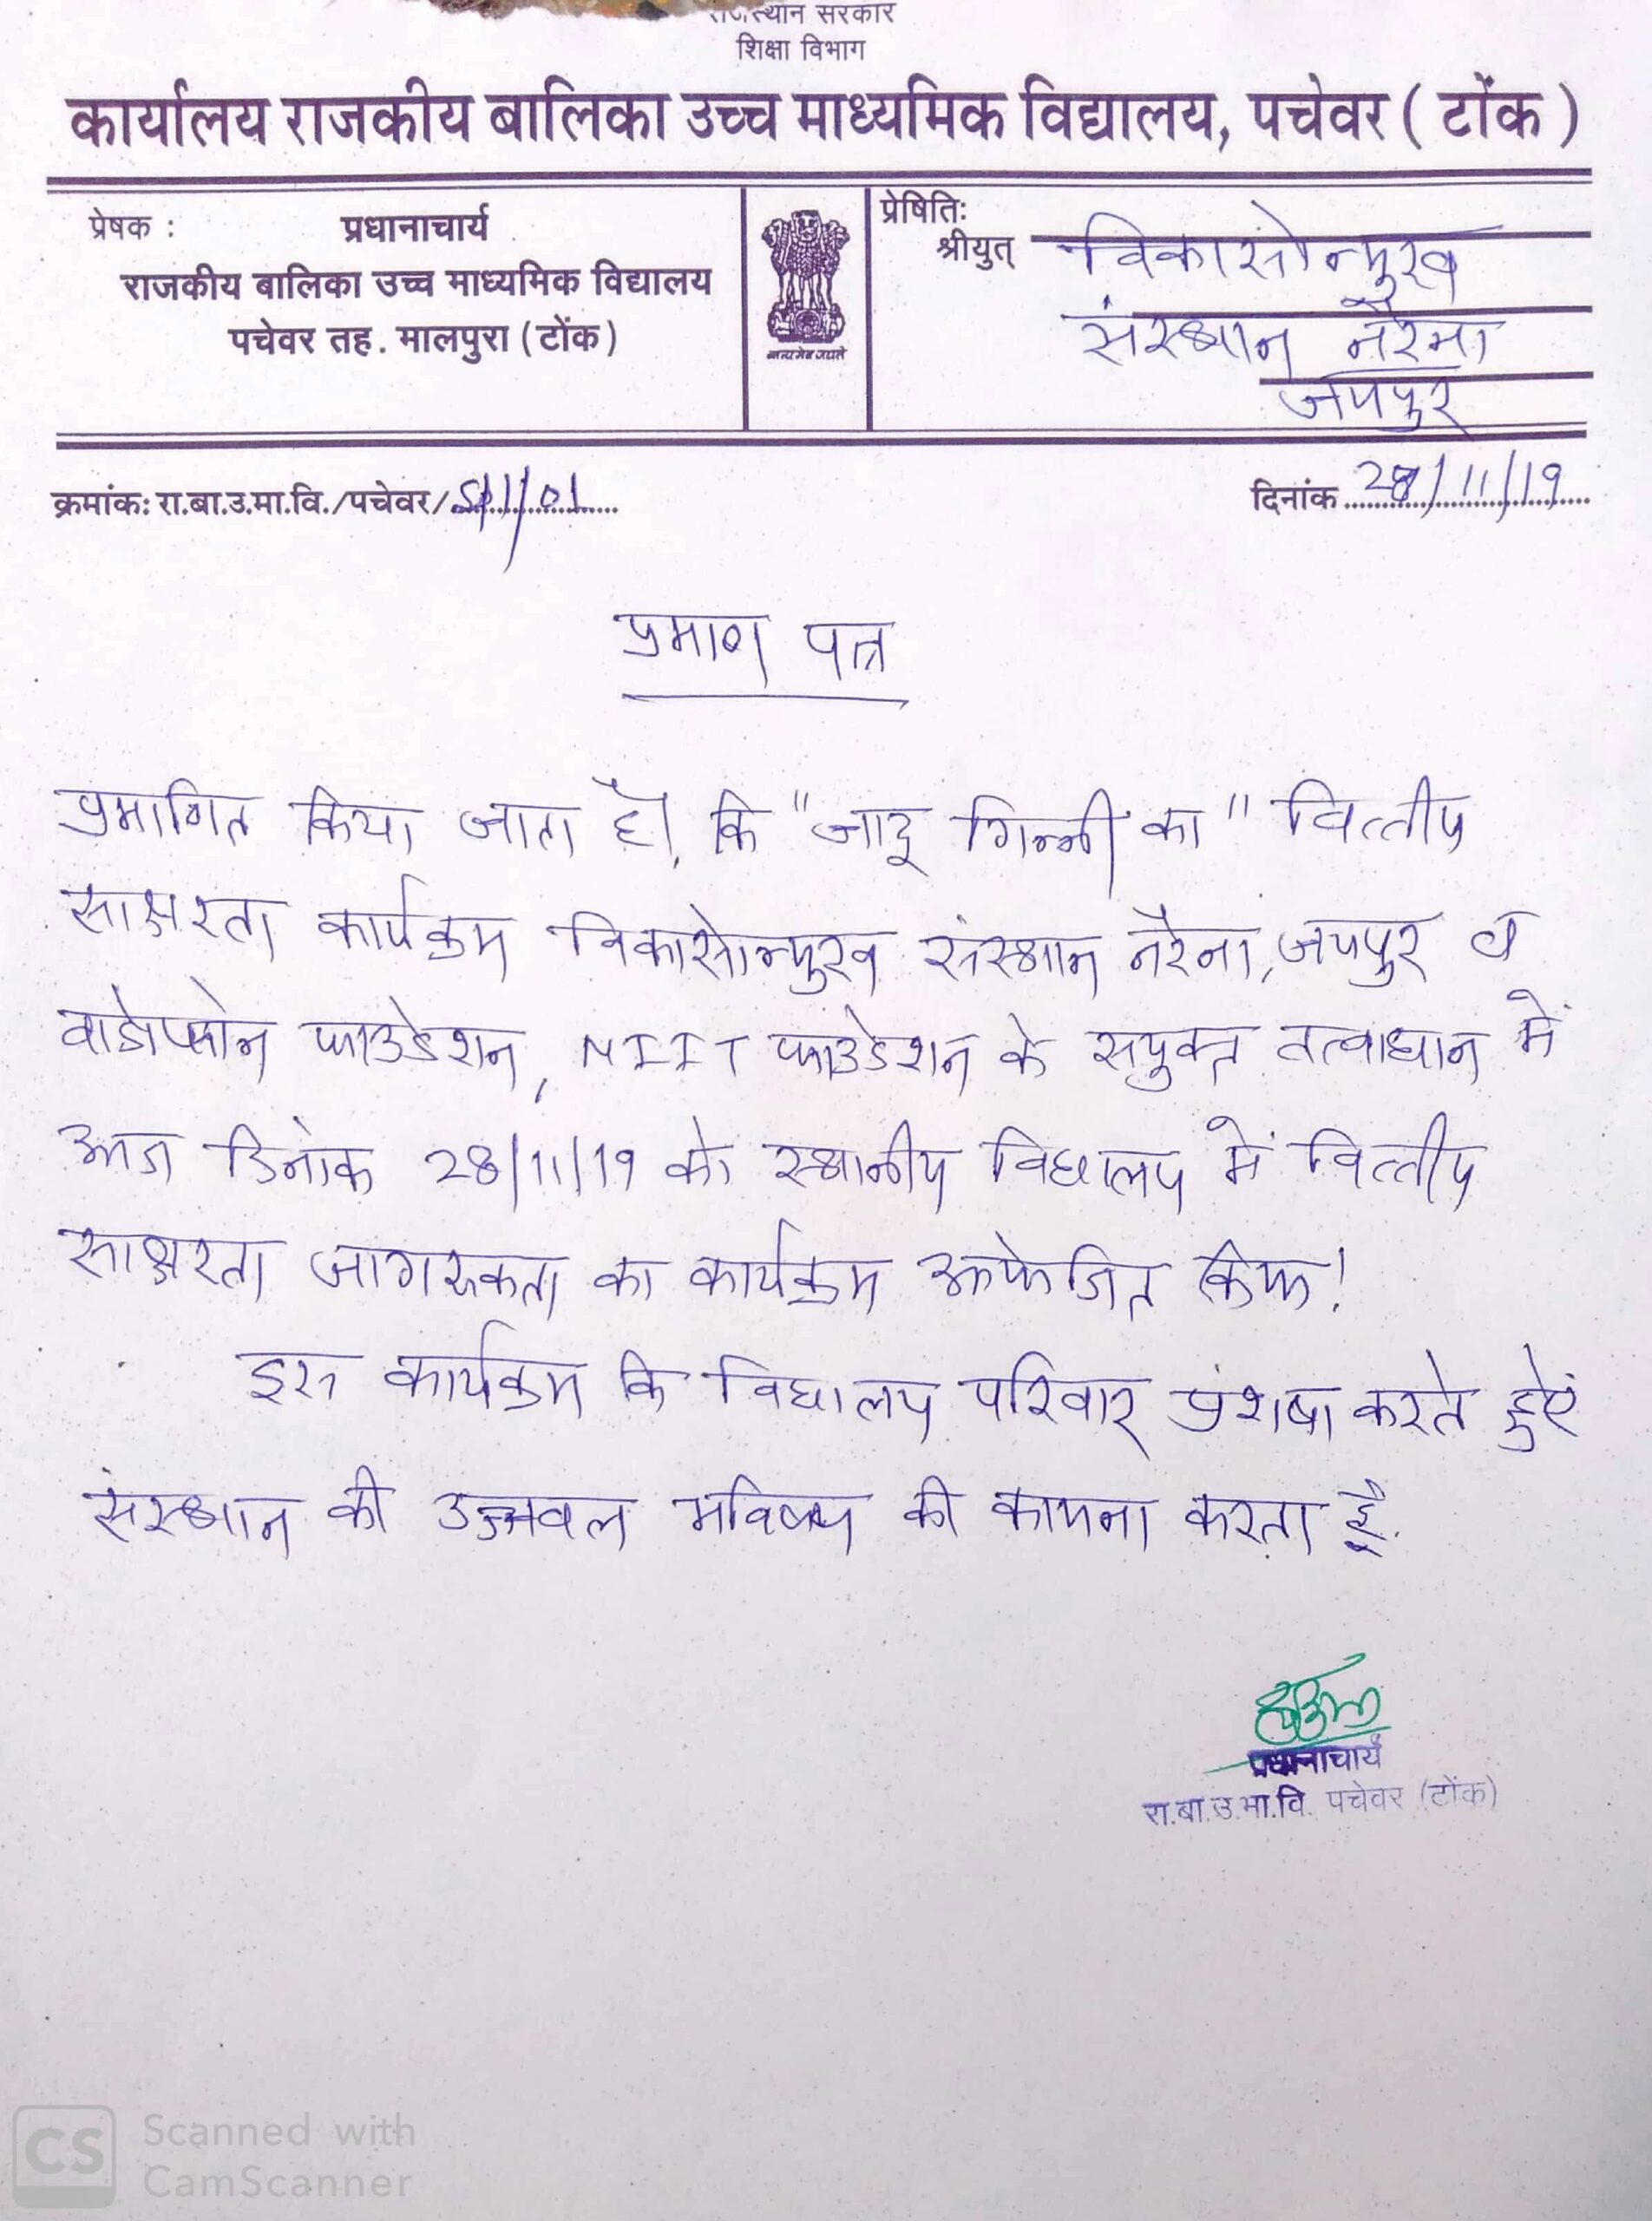 राजस्थान सरकार
शिक्षा विभाग
कार्यालय राजकीय बालिका उच्च माध्यमिक विद्यालय, पचेवर ( टोंक )
प्रेषक : प्रधानाचार्य
राजकीय बालिका उच्च माध्यमिक विद्यालय
पचेवर तह. मालपुरा (टोंक)
सत्यमेव जयते
प्रेषितिः
श्रीयुत् विकासोन्मुख
संस्थान नरैना
जयपुर
क्रमांक: रा.बा.उ.मा.वि./पचेवर/
दिनांक 28/11/19
प्रमाण पत्र
प्रमाणित किया जाता है। कि "जादू गिन्नी का" वित्तीय
साक्षरता कार्यक्रम विकासोन्मुख संस्थान नरैना, जयपुर व
वाडोफोन फाउडेशन, NIIT फाउडेशन के सयुक्त तत्वाधान में
आज दिनांक 28/11/19 को स्थानीय विद्यालय में वित्तीय
साक्षरता जागरूकता का कार्यक्रम आयोजित किया!
इस कार्यक्रम कि विद्यालय परिवार प्रंशषा करते हुऐ
संस्थान की उज्जवल भविष्य की कामना करता है.
प्रधानाचार्य
रा.बा.उ.मा.वि. पचेवर (टोंक)
CS
Scanned with
CamScanner